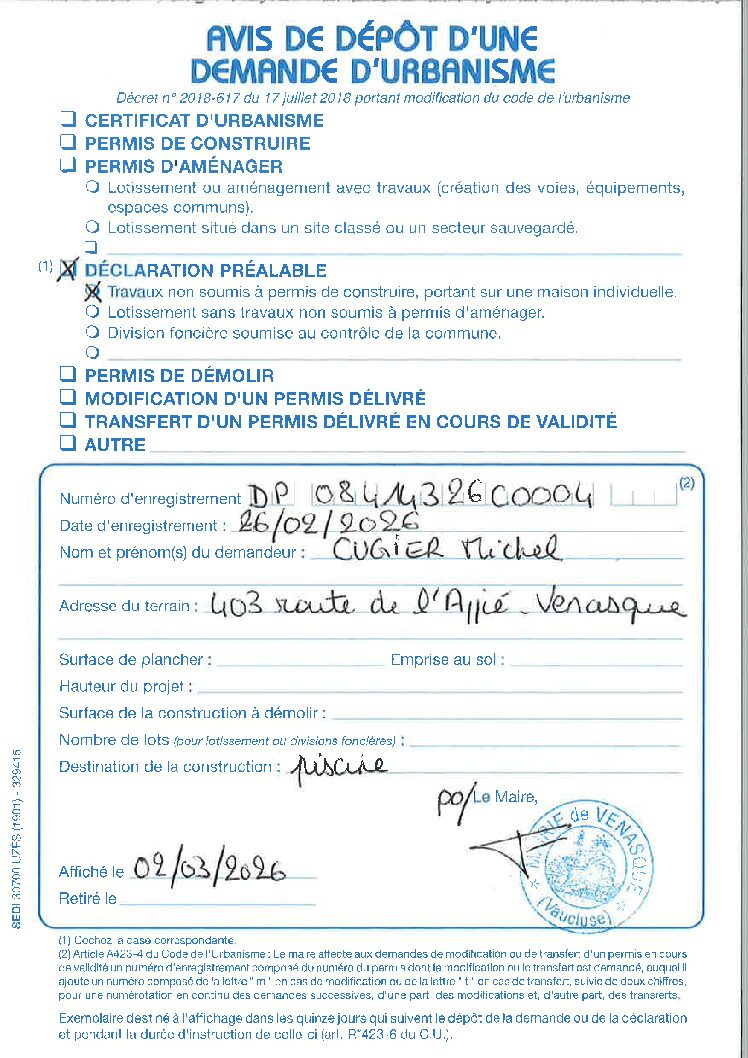 AVIS DE DÉPÔT D'UNE
DEMANDE D'URBANISME
Décret n° 2018-617 du 17 juillet 2018 portant modification du code de l'urbanisme
CERTIFICAT D'URBANISME
PERMIS DE CONSTRUIRE
PERMIS D'AMÉNAGER
Lotissement ou aménagement avec travaux (création des voies, équipements,
espaces communs).
Lotissement situé dans un site classé ou un secteur sauvegardé.
(1) DÉCLARATION PRÉALABLE
Travaux non soumis à permis de construire, portant sur une maison individuelle.
Lotissement sans travaux non soumis à permis d'aménager.
Division foncière soumise au contrôle de la commune.
PERMIS DE DÉMOLIR
MODIFICATION D'UN PERMIS DÉLIVRÉ
TRANSFERT D'UN PERMIS DÉLIVRÉ EN COURS DE VALIDITÉ
AUTRE
Numéro d'enregistrement DP 0841432600004 (2)
Date d'enregistrement : 26/02/2026
Nom et prénom(s) du demandeur : CUGIER Michel
Adresse du terrain : 403 route de l'Appié - Venasque
Surface de plancher : Emprise au sol :
Hauteur du projet :
Surface de la construction à démolir :
Nombre de lots (pour lotissement ou divisions foncières) :
Destination de la construction : piscine
po/Le Maire,
MAIRIE de VENASQUE
(Vaucluse)
Affiché le 02/03/2026
Retiré le
SEDI 30700 UZÈS (1901) - 329415
(1) Cochez la case correspondante.
(2) Article A423-4 du Code de l'Urbanisme : Le maire affecte aux demandes de modification ou de transfert d'un permis en cours
de validité un numéro d'enregistrement composé du numéro du permis dont la modification ou le transfert est demandé, auquel il
ajoute un numéro composé de la lettre "m" en cas de modification ou de la lettre "t" en cas de transfert, suivie de deux chiffres,
pour une numérotation en continu des demandes successives, d'une part des modifications et, d'autre part, des transferts.
Exemplaire destiné à l'affichage dans les quinze jours qui suivent le dépôt de la demande ou de la déclaration
et pendant la durée d'instruction de celle-ci (art. R*423-6 du C.U.).